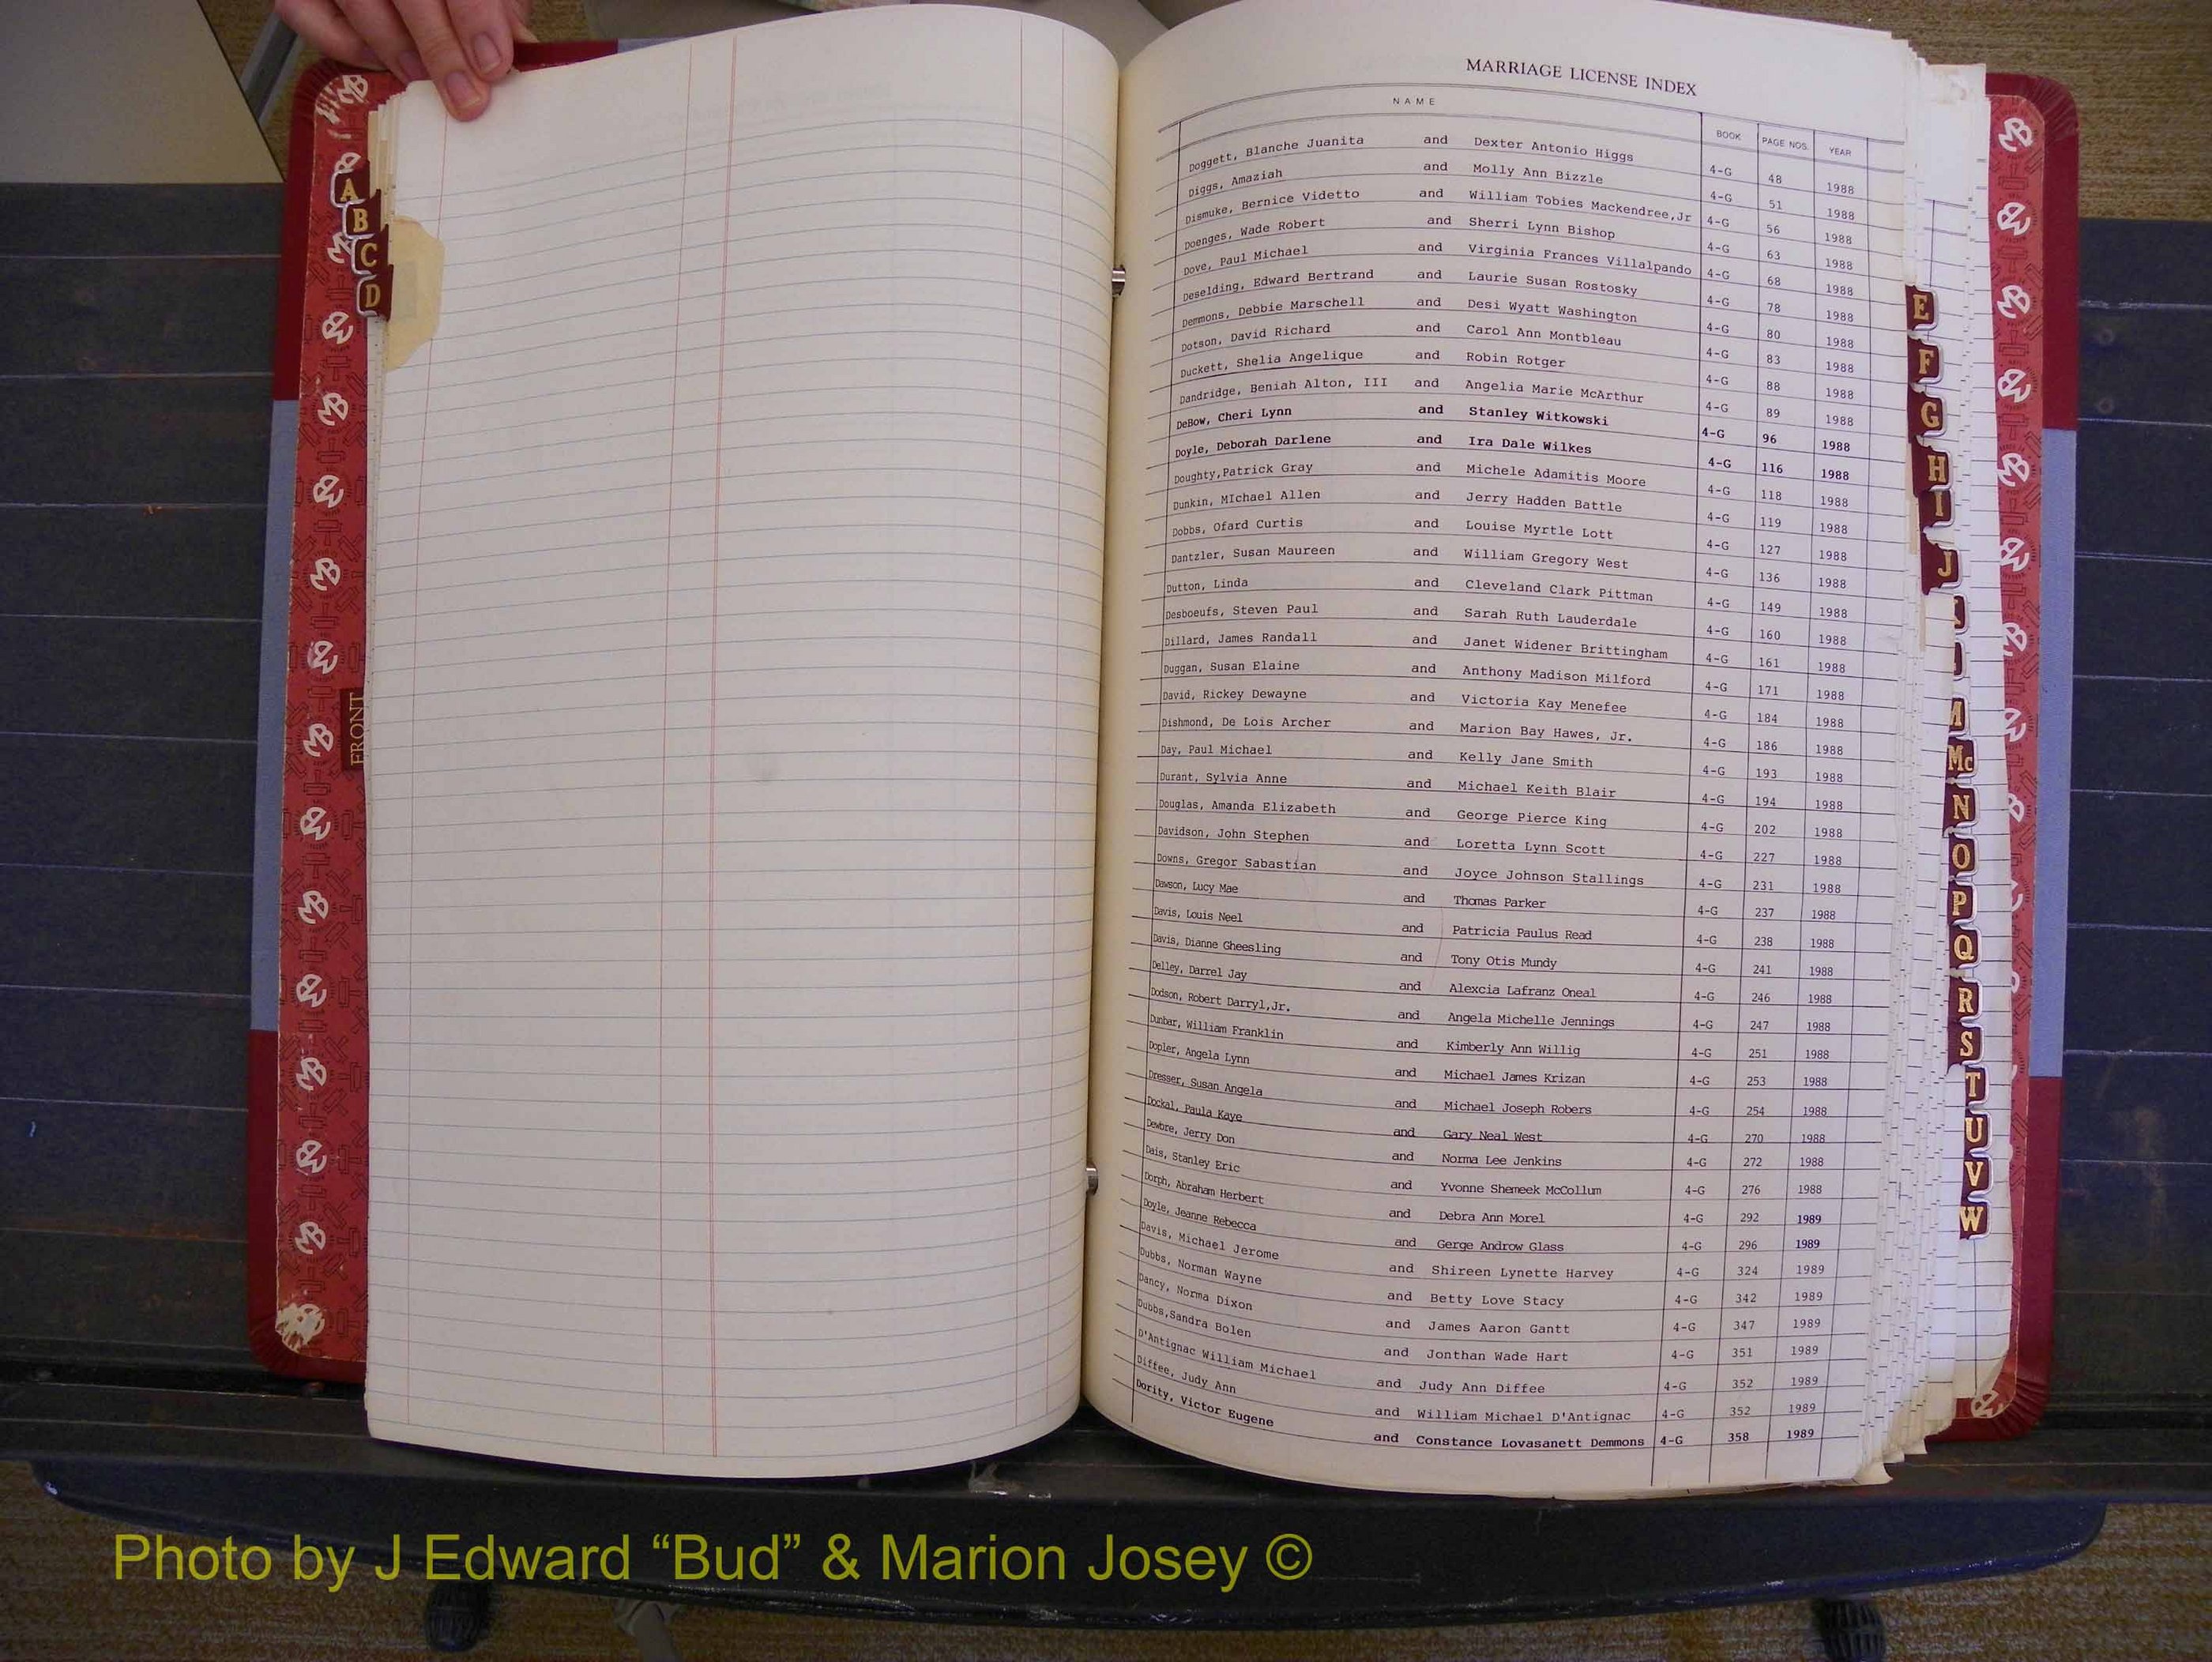 A
B
C
D
FRONT
MARRIAGE LICENSE INDEX
NAME BOOK PAGE NOS. YEAR
Doggett, Blanche Juanita and Dexter Antonio Higgs 4-G 48 1988
Diggs, Amaziah and Molly Ann Bizzle 4-G 51 1988
Dismuke, Bernice Videtto and William Tobies Mackendree,Jr 4-G 56 1988
Doenges, Wade Robert and Sherri Lynn Bishop 4-G 63 1988
Dove, Paul Michael and Virginia Frances Villalpando 4-G 68 1988
Deselding, Edward Bertrand and Laurie Susan Rostosky 4-G 78 1988
Demmons, Debbie Marschell and Desi Wyatt Washington 4-G 80 1988
Dotson, David Richard and Carol Ann Montbleau 4-G 83 1988
Duckett, Shelia Angelique and Robin Rotger 4-G 88 1988
Dandridge, Beniah Alton, III and Angelia Marie McArthur 4-G 89 1988
DeBow, Cheri Lynn and Stanley Witkowski 4-G 96 1988
Doyle, Deborah Darlene and Ira Dale Wilkes 4-G 116 1988
Doughty,Patrick Gray and Michele Adamitis Moore 4-G 118 1988
Dunkin, MIchael Allen and Jerry Hadden Battle 4-G 119 1988
Dobbs, Ofard Curtis and Louise Myrtle Lott 4-G 127 1988
Dantzler, Susan Maureen and William Gregory West 4-G 136 1988
Dutton, Linda and Cleveland Clark Pittman 4-G 149 1988
Desboeufs, Steven Paul and Sarah Ruth Lauderdale 4-G 160 1988
Dillard, James Randall and Janet Widener Brittingham 4-G 161 1988
Duggan, Susan Elaine and Anthony Madison Milford 4-G 171 1988
David, Rickey Dewayne and Victoria Kay Menefee 4-G 184 1988
Dishmond, De Lois Archer and Marion Bay Hawes, Jr. 4-G 186 1988
Day, Paul Michael and Kelly Jane Smith 4-G 193 1988
Durant, Sylvia Anne and Michael Keith Blair 4-G 194 1988
Douglas, Amanda Elizabeth and George Pierce King 4-G 202 1988
Davidson, John Stephen and Loretta Lynn Scott 4-G 227 1988
Downs, Gregor Sabastian and Joyce Johnson Stallings 4-G 231 1988
Dawson, Lucy Mae and Thomas Parker 4-G 237 1988
Davis, Louis Neel and Patricia Paulus Read 4-G 238 1988
Davis, Dianne Gheesling and Tony Otis Mundy 4-G 241 1988
Delley, Darrel Jay and Alexcia Lafranz Oneal 4-G 246 1988
Dodson, Robert Darryl,Jr. and Angela Michelle Jennings 4-G 247 1988
Dunbar, William Franklin and Kimberly Ann Willig 4-G 251 1988
Dopler, Angela Lynn and Michael James Krizan 4-G 253 1988
Dresser, Susan Angela and Michael Joseph Robers 4-G 254 1988
Dockal, Paula Kaye and Gary Neal West 4-G 270 1988
Dewbre, Jerry Don and Norma Lee Jenkins 4-G 272 1988
Dais, Stanley Eric and Yvonne Shemeek McCollum 4-G 276 1988
Dorph, Abraham Herbert and Debra Ann Morel 4-G 292 1989
Doyle, Jeanne Rebecca and Gerge Androw Glass 4-G 296 1989
Davis, Michael Jerome and Shireen Lynette Harvey 4-G 324 1989
Dubbs, Norman Wayne and Betty Love Stacy 4-G 342 1989
Dancy, Norma Dixon and James Aaron Gantt 4-G 347 1989
Dubbs,Sandra Bolen and Jonthan Wade Hart 4-G 351 1989
D'Antignac William Michael and Judy Ann Diffee 4-G 352 1989
Diffee, Judy Ann and William Michael D'Antignac 4-G 352 1989
Dority, Victor Eugene and Constance Lovasanett Demmons 4-G 358 1989
E
F
G
H
I
J
M
Mc
N
O
P
Q
R
S
T
U
V
W
Photo by J Edward “Bud” & Marion Josey ©